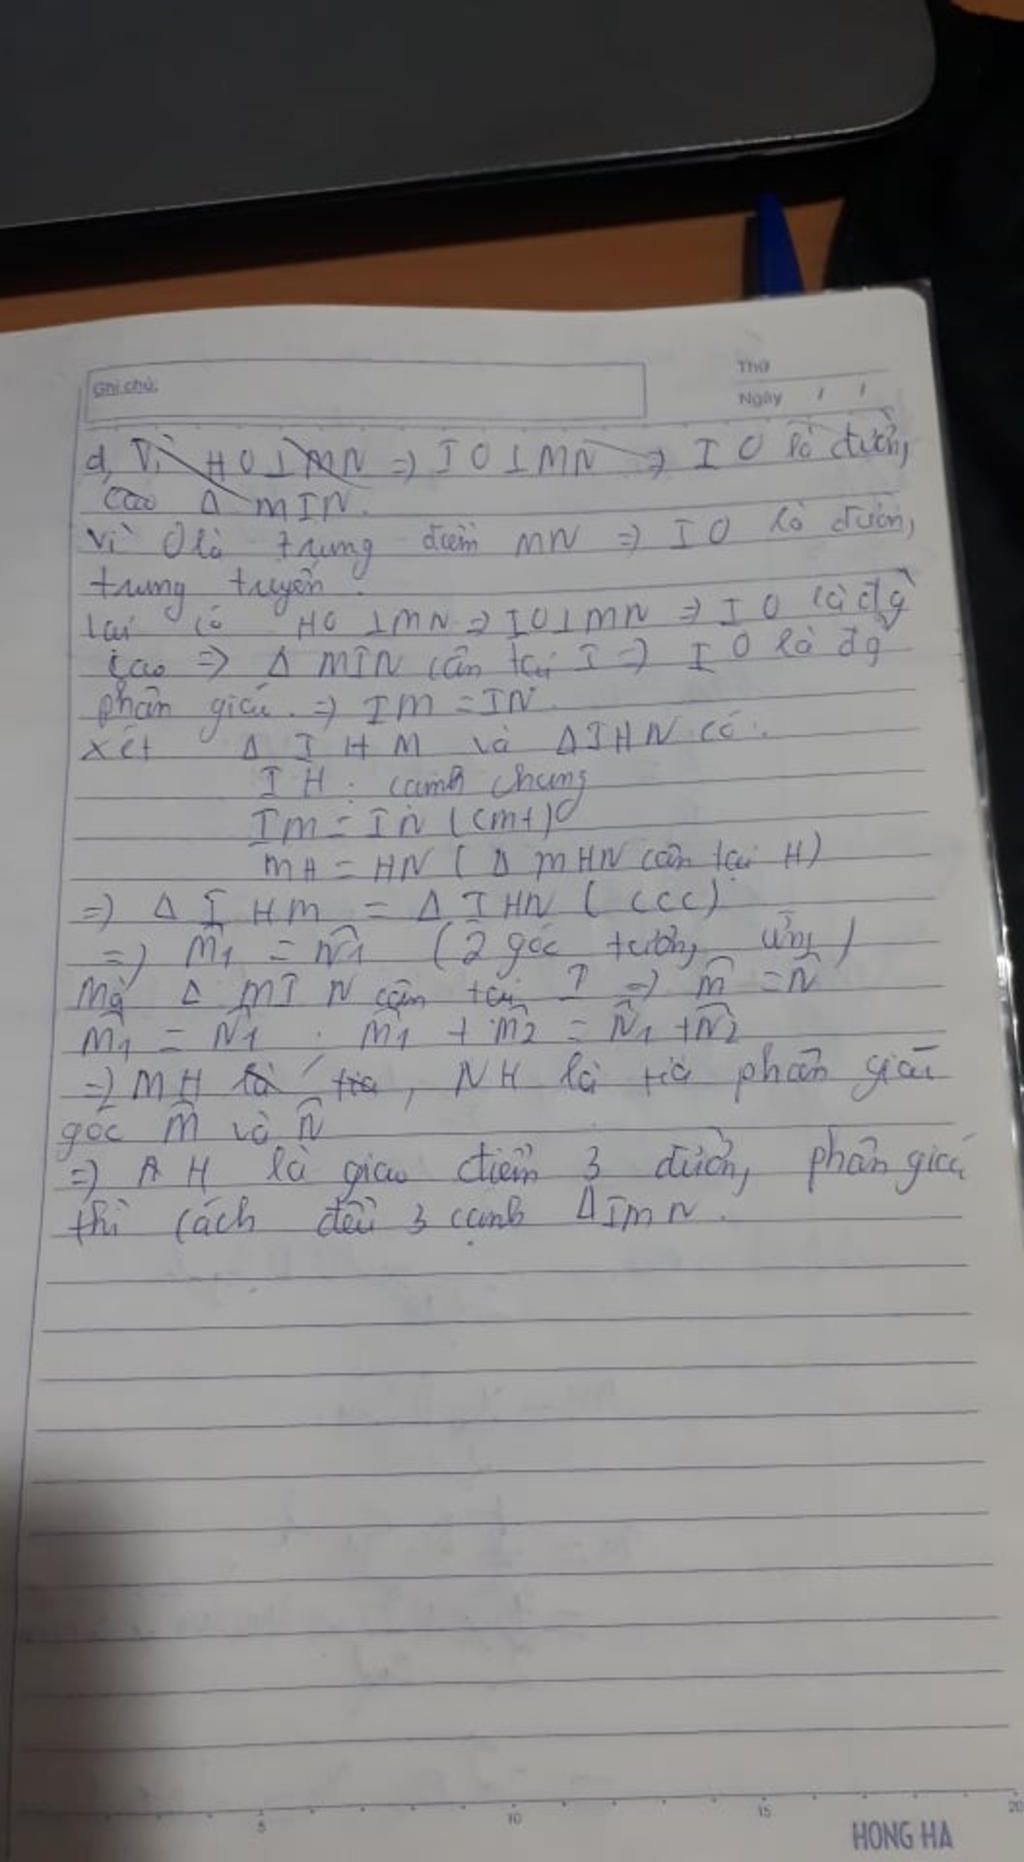 Ghi chú:
Thứ
Ngày / /
d, Vì HO⊥MN => IO⊥MN => IO là đường
cao Δ MIN.
Vì O là trung điểm MN => IO là đường
trung truyến.
lại có HO⊥MN => IO⊥MN => IO là đg
cao => Δ MIN cân tại I => IO là đg
phân giác. => IM = IN.
Xét Δ IHM và ΔIHN có:
IH: cạnh chung
IM = IN (cmt)
MH = HN (Δ MHN cân tại H)
=> Δ IHM = Δ IHN (ccc)
=> M̂1 = N̂1 (2 góc tương ứng)
Mà Δ MIN cân tại I => M̂ = N̂
M̂1 = N̂1 . M̂1 + M̂2 = N̂1 + N̂2
=> MH là tia, NH là tia phân giác
góc M̂ và N̂
=> H là giao điểm 3 đường phân giác
thì cách đều 3 cạnh ΔIMN.
5 10 15 20
HONG HA